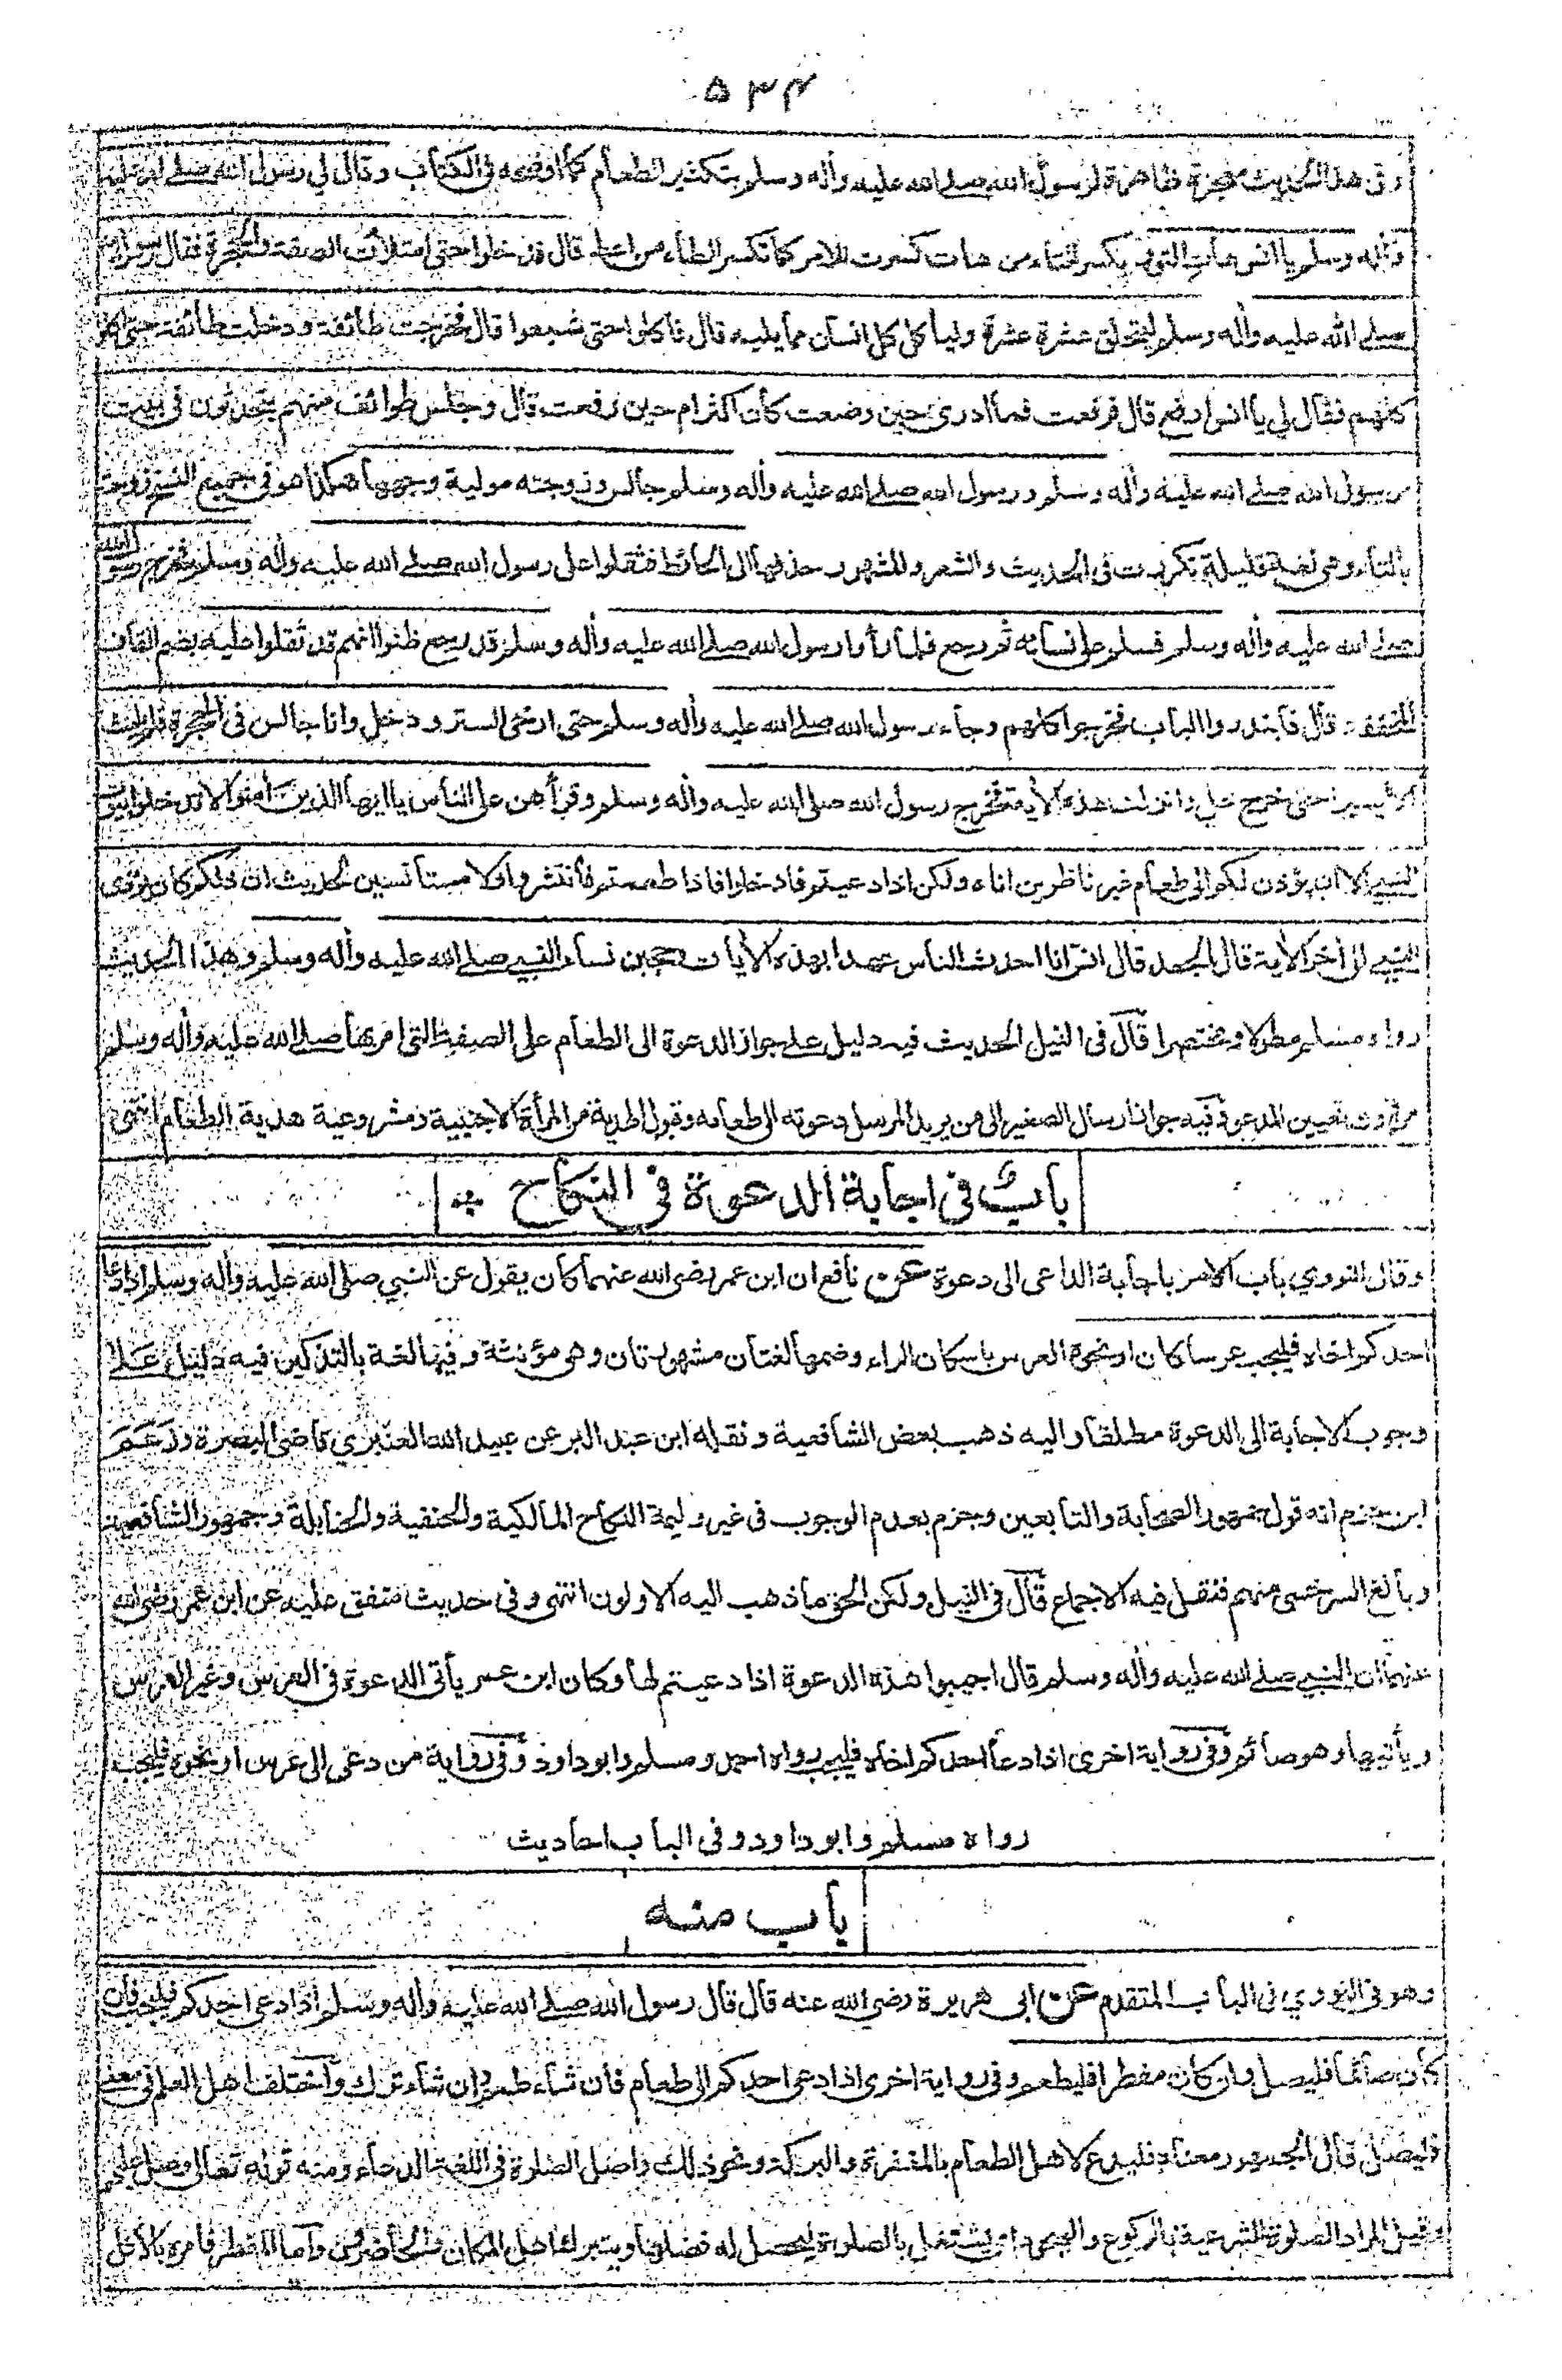 ۵۳۴
وفى هذا الحديث معجزة ظاهرة لرسول الله صلى الله عليه وأله وسلم بتكثير الطعام كما اوضحه فى الكتاب وقال لي رسول الله صلى الله عليه
وأله وسلم يا انس هات التور بكسر التاء من هات كسرت للامر كما تكسر الطاء من اعط قال فدخلوا حتى امتلأت الصفة والحجرة فقال رسول الله
صلى الله عليه وأله وسلم ليتحلق عشرة عشرة وليأكل كل انسان مما يليه قال فأكلوا حتى شبعوا قال فخرجت طائفة ودخلت طائفة حتى اكلوا
كلهم فقال لي يا انس ارفع قال فرفعت فما ادرى حين وضعت كان اكثر ام حين رفعت قال وجلس طوائف منهم يتحدثون فى بيت
رسول الله صلى الله عليه وأله وسلم ورسول الله صلى الله عليه وأله وسلم جالس وزوجته مولية وجهها هكذا هو فى جميع النسخ زوجته
بالتاء وهى لغة قليلة تكررت فى الحديث والشعر والمشهور حذفها الى الحائط فثقلوا على رسول الله صلى الله عليه وأله وسلم فخرج رسول الله
صلى الله عليه وأله وسلم فسلم على نسائه ثم رجع فلما رأوا رسول الله صلى الله عليه وأله وسلم قد رجع ظنوا انهم قد ثقلوا عليه بضم القاف
المخففة قال فابتدروا الباب فخرجوا كلهم وجاء رسول الله صلى الله عليه وأله وسلم حتى ارخى الستر ودخل وانا جالس فى الحجرة فلم يلبث
الا يسيرا حتى خرج علي وانزلت هذه الأية فخرج رسول الله صلى الله عليه وأله وسلم وقرأهن على الناس يا ايها الذين أمنوا لا تدخلوا بيوت
النبي الا ان يؤذن لكم الى طعام غير ناظرين اناه ولكن اذا دعيتم فادخلوا فاذا طعمتم فانتشروا ولا مستأنسين لحديث ان ذلكم كان يؤذى
النبي الى أخر الأية قال الجعد قال انس انا احدث الناس عهدا بهذه الأيات وحجبن نساء النبي صلى الله عليه وأله وسلم وهذا الحديث
رواه مسلم مطولا ومختصرا قال فى النيل الحديث فيه دليل على جواز الدعوة الى الطعام على الصفة التى امر بها صلى الله عليه وأله وسلم
من دون تعيين المدعو وفيه جواز ارسال الصغير الى من يريد المرسل دعوته الى طعامه وقبول الهدية من المرأة الاجنبية ومشروعية هدية الطعام انتهى
باب فى اجابة الدعوة فى النكاح
وقال النووي باب الامر باجابة الداعى الى دعوة عن نافع ان ابن عمر رضى الله عنهما كان يقول عن النبي صلى الله عليه وأله وسلم اذا دعا
احدكم اخاه فليجب عرسا كان او نحوه العرس باسكان الراء وضمها لغتان مشهورتان وهى مؤنثة وفيها لغة بالتذكير فيه دليل على
وجوب الاجابة الى الدعوة مطلقا واليه ذهب بعض الشافعية ونقله ابن عبد البر عن عبيد الله العنبري قاضى البصرة وزعم
ابن حزم انه قول جمهور الصحابة والتابعين وجزم بعدم الوجوب فى غير وليمة النكاح المالكية والحنفية والحنابلة وجمهور الشافعية
وبالغ السرخسى منهم فنقل فيه الاجماع قال فى النيل ولكن الحق ما ذهب اليه الاولون انتهى وفى حديث متفق عليه عن ابن عمر رضى الله
عنهما ان النبي صلى الله عليه وأله وسلم قال اجيبوا هذه الدعوة اذا دعيتم لها وكان ابن عمر يأتى الدعوة فى العرس وغير العرس
ويأتيها وهو صائم وفى رواية اخرى اذا دعا احدكم اخاه فليجب رواه احمد ومسلم وابو داود وفى رواية من دعى الى عرس او نحوه فليجب
رواه مسلم وابو داود وفى الباب احاديث
باب منه
وهو فى النووي فى الباب المتقدم عن ابى هريرة رضي الله عنه قال قال رسول الله صلى الله عليه وأله وسلم اذا دعى احدكم فليجب فان
كان صائما فليصل وان كان مفطرا فليطعم وفى رواية اخرى اذا دعى احدكم الى طعام فان شاء طعم وان شاء ترك واختلف اهل العلم فى معنى
فليصل قال الجمهور معناه فليدع لاهل الطعام بالمغفرة والبركة ونحو ذلك واصل الصلوة فى اللغة الدعاء ومنه قوله تعالى وصل عليهم
وقيل المراد الصلوة الشرعية بالركوع والسجود اى يشتغل بالصلوة ليحصل له فضلها ويتبرك اهل المكان والحاضرون واما المفطر فامره بالأكل